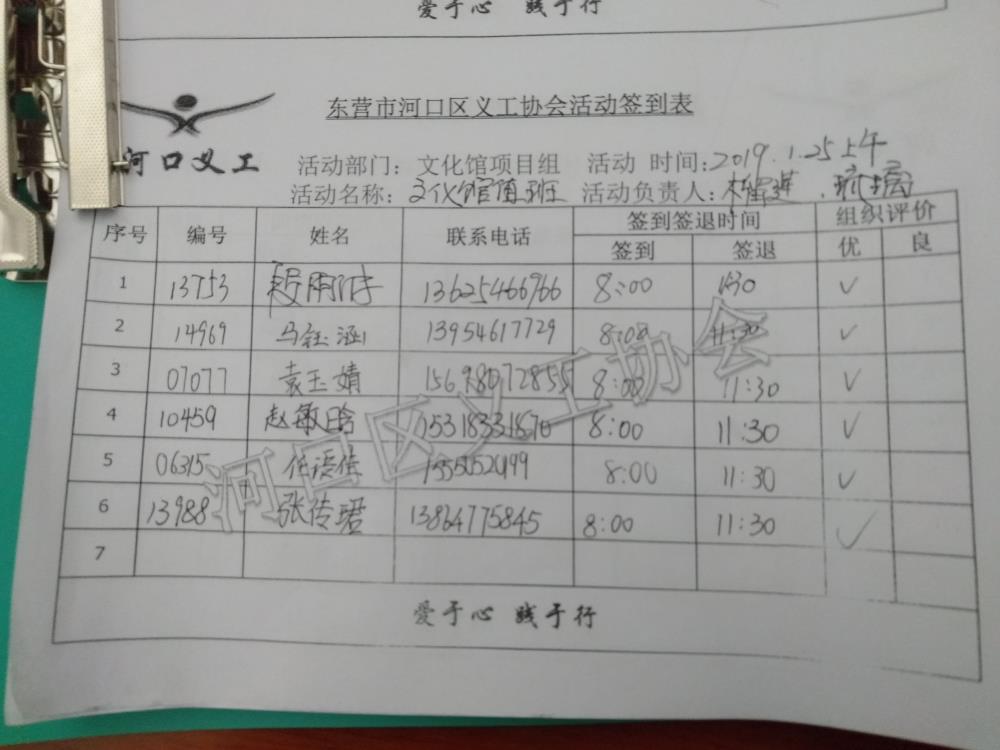 爱于心 践于行
东营市河口区义工协会活动签到表
河口义工 活动部门：文化馆项目组 活动 时间：2019.1.25上午
活动名称：文化馆值班 活动负责人：
序号 编号 姓名 联系电话 签到签退时间 组织评价
签到 签退 优 良
1 13753 13625466966 8:00 ✓
2 14969 马钰涵 13954617729 8:00 11:30 ✓
3 07077 袁玉婧 15698072855 8:00 11:30 ✓
4 10459 赵敏晗 15318331870 8:00 11:30 ✓
5 06315 8:00 11:30 ✓
6 13988 张传珺 13864775845 8:00 11:30 ✓
7
爱于心 践于行
河口区义工协会